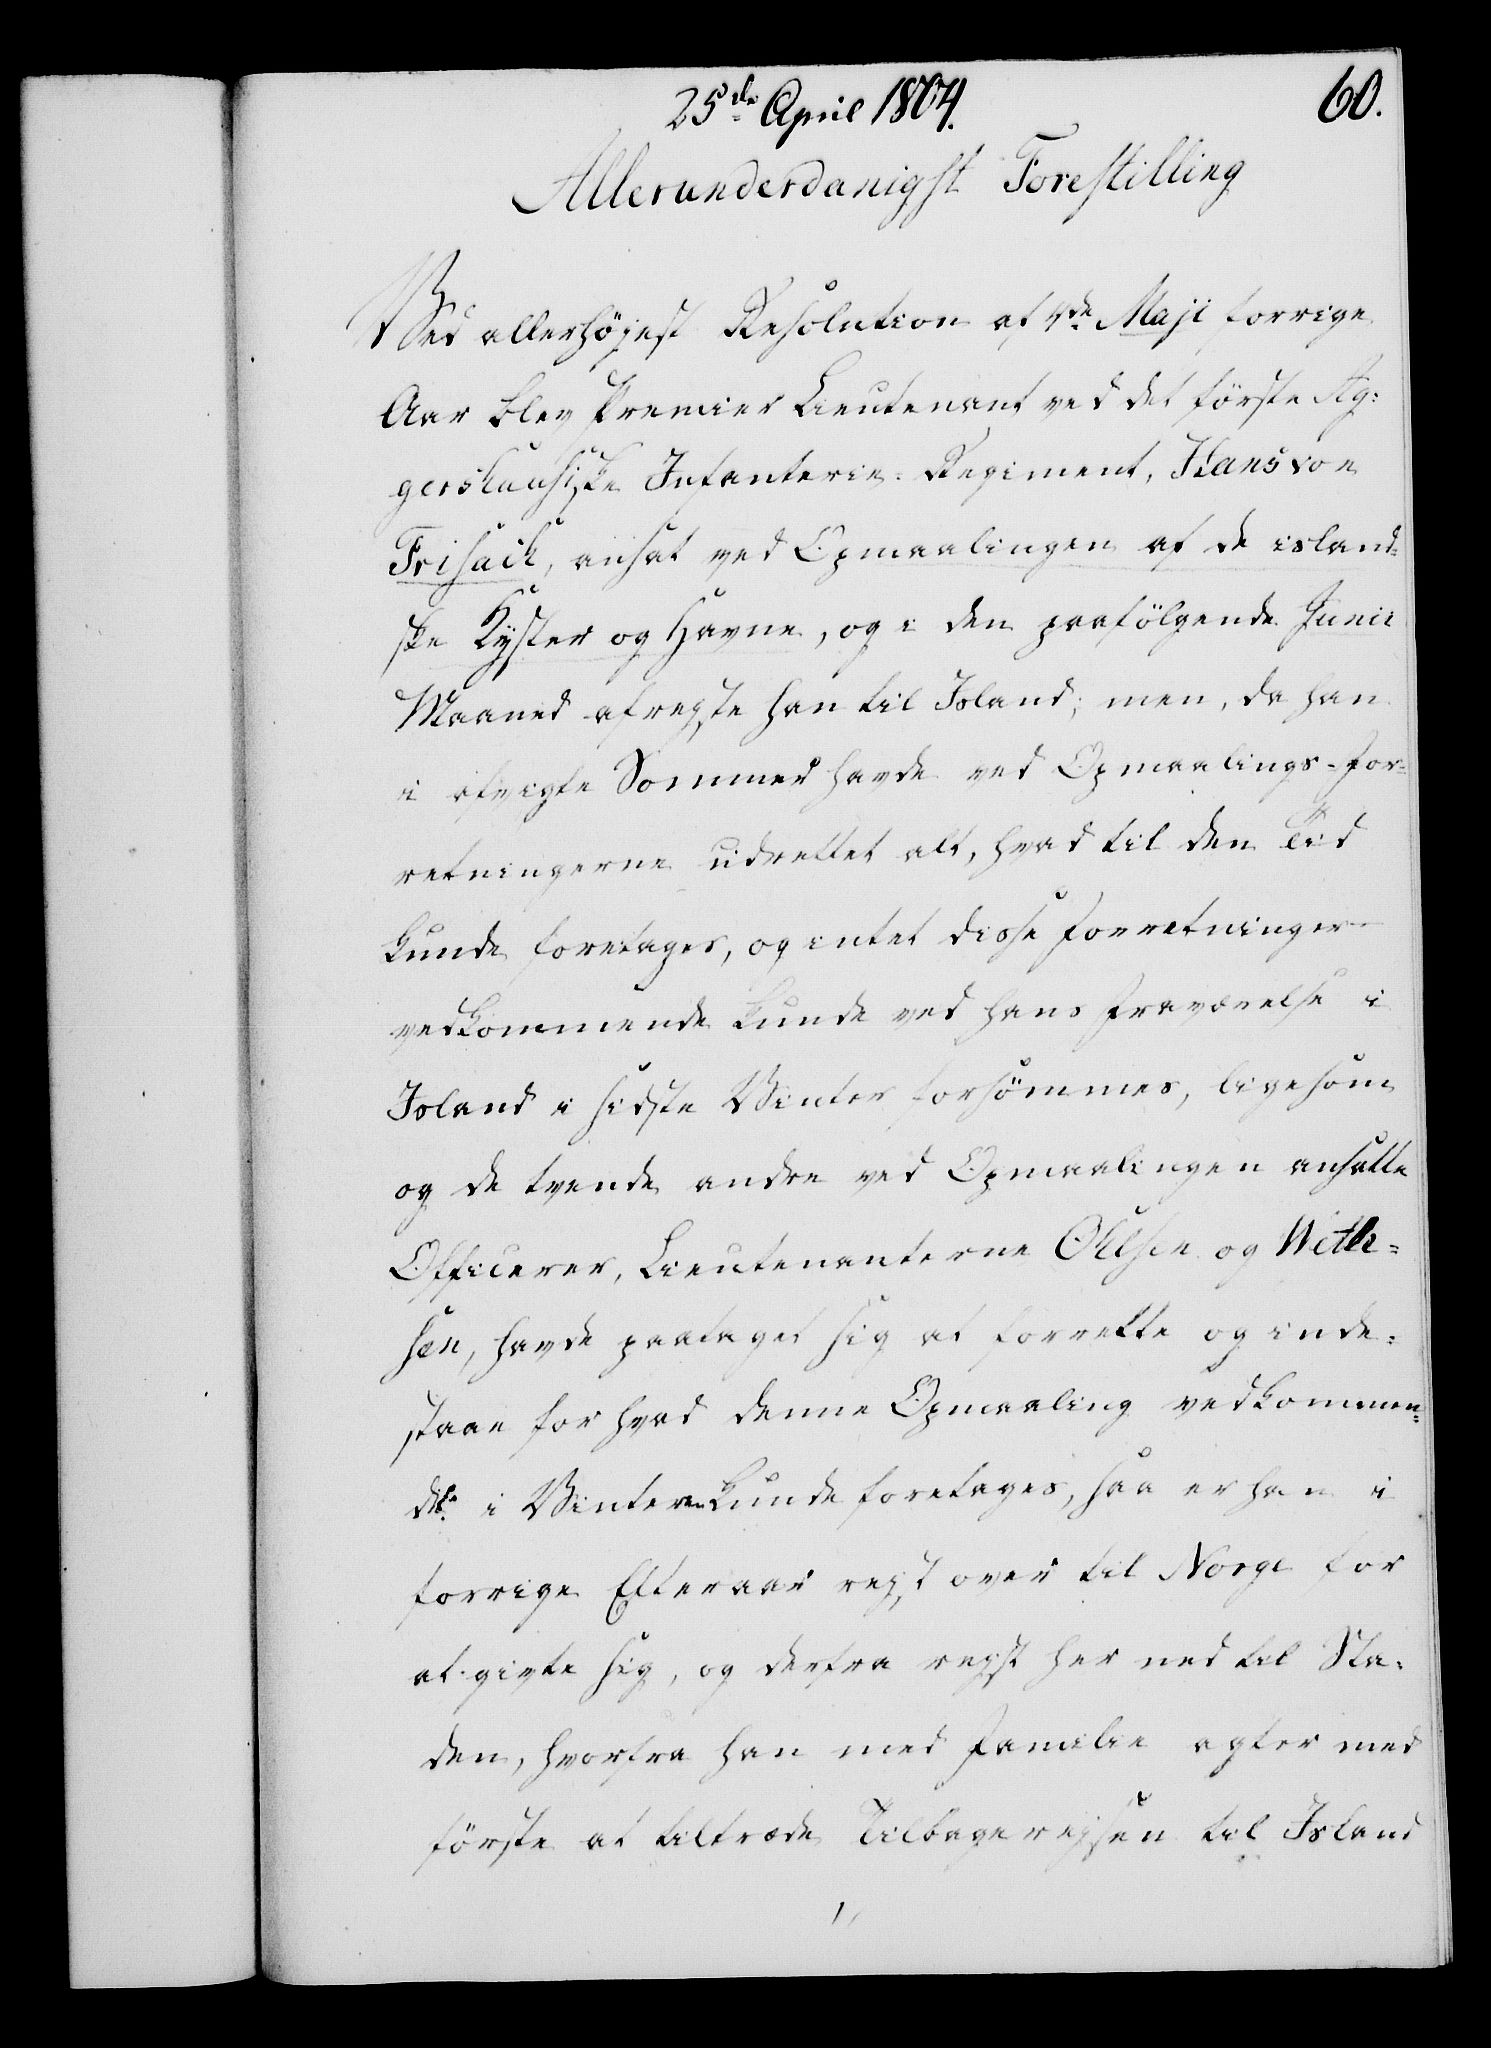 25de April 1804.
60.
Allerunderdanigst Forestilling
Ved allerhöjest Resolution af 4de Maji forrige
Aar blev Premier Lieutenant ved det förste Ag:
gershuusiske Infanterie-Regiment, Hans von
Frisach, ansat ved Opmaalingen af de island-
ske Kyster og Havne, og i den paafölgende Junii
Maaned afrejste han til Island; men, da han
i afvigte Sommer havde ved Opmaalings-For-
retningerne udrettet alt, hvad til den Tid
kunde foretages, og intet disse Forretninger
vedkommende kunde ved hans Fraværelse i
Island i sidste Vinter forsömmes, ligesom
og de tvende andre ved Opmaalingen ansatte
Officerer, Lieutenanterne Ohlsen og Weth-
sen, havde paataget sig at forrette og inde-
staae for hvad denne Opmaaling vedkommen-
de i Vinteren kunde foretages, saa er han i
forrige Efteraar rejst over til Norge for
at givte sig, og derfra rejst her ned til Sta-
den, hvorfra han med Familie agter med
förste at tiltræde Tilbagerejsen til Island